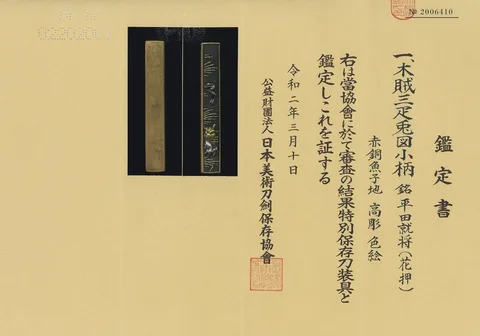 № 2006410
鑑定書
一、木賊三疋兎図小柄 銘 平田就将(花押)
赤銅魚子地 高彫 色絵
右は當協會に於て審査の結果特別保存刀装具と
鑑定しこれを証する
令和二年三月十日
公益財團法人 日本美術刀劍保存協會